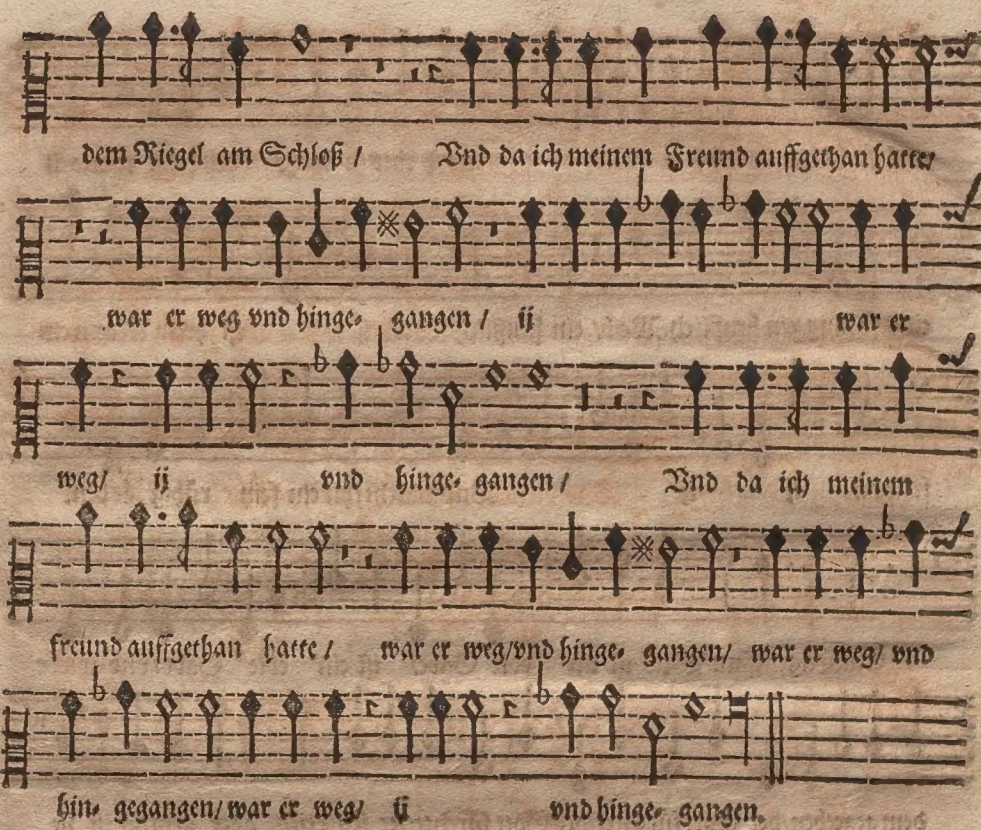 dem Riegel am Schloß / Vnd da ich meinem Freund auffgethan hatte/
war er weg vnd hinge⸗ gangen / ij war er
weg/ ij vnd hinge⸗ gangen / Vnd da ich meinem
freund auffgethan hatte / war er weg/vnd hinge⸗ gangen/ war er weg/ vnd
hin⸗ gegangen/ war er weg/ ij vnd hinge⸗ gangen.